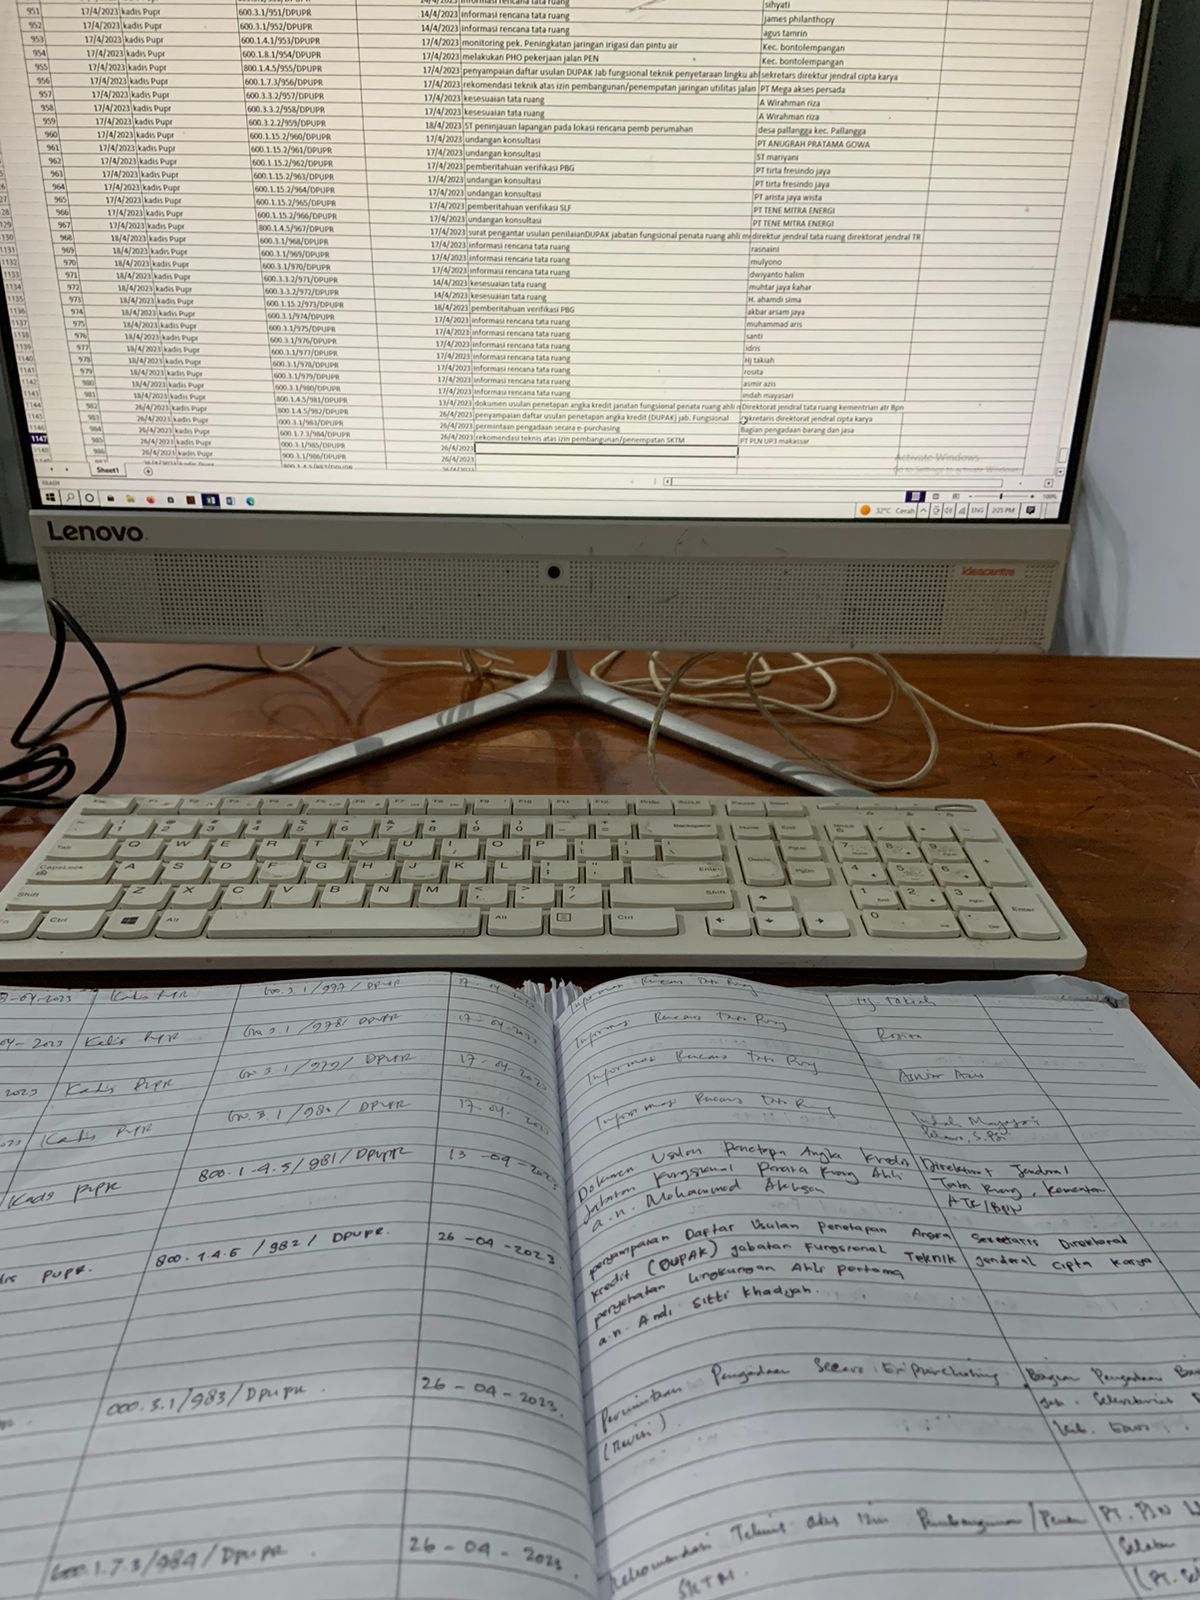 951 17/4/2023 kadis Pupr 600.3.1/951/DPUPR 14/4/2023 informasi rencana tata ruang sihyati
952 17/4/2023 kadis Pupr 600.3.1/952/DPUPR 14/4/2023 informasi rencana tata ruang james philanthopy
953 17/4/2023 kadis Pupr 600.1.4.1/953/DPUPR 14/4/2023 informasi rencana tata ruang agus tamrin
954 17/4/2023 kadis Pupr 600.1.8.1/954/DPUPR 17/4/2023 monitoring pek. Peningkatan jaringan irigasi dan pintu air Kec. bontolempangan
955 17/4/2023 kadis Pupr 800.1.4.5/955/DPUPR 17/4/2023 melakukan PHO pekerjaan jalan PEN Kec. bontolempangan
956 17/4/2023 kadis Pupr 600.1.7.3/956/DPUPR 17/4/2023 penyampaian daftar usulan DUPAK Jab fungsional teknik penyetaraan lingku ah sekretars direktur jendral cipta karya
957 17/4/2023 kadis Pupr 600.3.3.2/957/DPUPR 17/4/2023 rekomendasi teknik atas izin pembangunan/penempatan jaringan utilitas jalan PT Mega akses persada
958 17/4/2023 kadis Pupr 600.3.3.2/958/DPUPR 17/4/2023 kesesuaian tata ruang A Wirahman riza
959 17/4/2023 kadis Pupr 600.3.2.2/959/DPUPR 17/4/2023 kesesuaian tata ruang A Wirahman riza
960 17/4/2023 kadis Pupr 600.1.15.2/960/DPUPR 18/4/2023 ST peninjauan lapangan pada lokasi rencana pemb perumahan desa pallangga kec. Pallangga
961 17/4/2023 kadis Pupr 600.1.15.2/961/DPUPR 17/4/2023 undangan konsultasi PT ANUGRAH PRATAMA GOWA
962 17/4/2023 kadis Pupr 600.1.15.2/962/DPUPR 17/4/2023 undangan konsultasi ST mariyani
963 17/4/2023 kadis Pupr 600.1.15.2/963/DPUPR 17/4/2023 pemberitahuan verifikasi PBG PT tirta fresindo jaya
964 17/4/2023 kadis Pupr 600.1.15.2/964/DPUPR 17/4/2023 undangan konsultasi PT tirta fresindo jaya
965 17/4/2023 kadis Pupr 600.1.15.2/965/DPUPR 17/4/2023 undangan konsultasi PT arista jaya wista
966 17/4/2023 kadis Pupr 600.1.15.2/966/DPUPR 17/4/2023 pemberitahuan verifikasi SLF PT TENE MITRA ENERGI
967 17/4/2023 kadis Pupr 800.1.4.5/967/DPUPR 17/4/2023 undangan konsultasi PT TENE MITRA ENERGI
1130 968 18/4/2023 kadis Pupr 600.3.1/968/DPUPR 17/4/2023 surat pengantar usulan penilaianDUPAK jabatan fungsional penata ruang ahli m direktur jendral tata ruang direktorat jendral TR
1131 969 18/4/2023 kadis Pupr 600.3.1/969/DPUPR 17/4/2023 informasi rencana tata ruang rasnaini
1132 970 18/4/2023 kadis Pupr 600.3.1/970/DPUPR 17/4/2023 informasi rencana tata ruang mulyono
1133 971 18/4/2023 kadis Pupr 600.3.3.2/971/DPUPR 17/4/2023 informasi rencana tata ruang dwiyanto halim
1134 972 18/4/2023 kadis Pupr 600.3.3.2/972/DPUPR 14/4/2023 kesesuaian tata ruang muhtar jaya kahar
1135 973 18/4/2023 kadis Pupr 600.1.15.2/973/DPUPR 14/4/2023 kesesuaian tata ruang H. ahamdi sima
1136 974 18/4/2023 kadis Pupr 600.3.1/974/DPUPR 18/4/2023 pemberitahuan verifikasi PBG akbar arsam jaya
1137 975 18/4/2023 kadis Pupr 600.3.1/975/DPUPR 17/4/2023 informasi rencana tata ruang muhammad aris
1138 976 18/4/2023 kadis Pupr 600.3.1/976/DPUPR 17/4/2023 informasi rencana tata ruang santi
1139 977 18/4/2023 kadis Pupr 600.3.1/977/DPUPR 17/4/2023 informasi rencana tata ruang idris
1140 978 18/4/2023 kadis Pupr 600.3.1/978/DPUPR 17/4/2023 informasi rencana tata ruang Hj takiah
1141 979 18/4/2023 kadis Pupr 600.3.1/979/DPUPR 17/4/2023 informasi rencana tata ruang rosita
1142 980 18/4/2023 kadis Pupr 600.3.1/980/DPUPR 17/4/2023 informasi rencana tata ruang asmir azis
1143 981 18/4/2023 kadis Pupr 800.1.4.5/981/DPUPR 17/4/2023 informasi rencana tata ruang indah mayasari
1144 982 26/4/2023 kadis Pupr 800.1.4.5/982/DPUPR 13/4/2023 dokumen usulan penetapan angka kredit janatan fungsional penata ruang ahli m Direktorat jendral tata ruang kementrian atr Bpn
1145 983 26/4/2023 kadis Pupr 000.3.1/983/DPUPR 26/4/2023 penyampaian daftar usulan penetapan angka kredit (DUPAK) jab. Fungsional sekretaris direktorat jendral cipta karya
1146 984 26/4/2023 kadis Pupr 600.1.7.3/984/DPUPR 26/4/2023 permintaan pengadaan secara e-purchasing Bagian pengadaan barang dan jasa
1147 985 26/4/2023 kadis Pupr 000.3.1/985/DPUPR 26/4/2023 rekomendasi teknis atas izin pembangunan/penempatan SKTM PT PLN UP3 makassar
986 26/4/2023 kadis Pupr 900.3.1/986/DPUPR 26/4/2023
26/4/2023
Activate Windows
Go to Settings to activate Windows
Sheet1
READY
100%
32°C Cerah ENG 2:25 PM
Lenovo
ideacentre
Esc F1 F2 F3 F4 F5 F6 F7 F8 F9 F10 F11 F12 PrtSc ScrLK Pause Insert
1 2 3 4 5 6 7 8 9 0 Backspace Home End NumLK
Tab Q W E R T Y U I O P Delete PgUp PgDn 7 8 9
CapsLock A S D F G H J K L Enter 4 5 6
Shift Z X C V B N M Shift 1 2 3 Enter
Fn Ctrl Alt Alt Ctrl 0
04-2023 Kadis PUPR 600.3.1/977/DPUPR 17-04-2023 Informasi Rencana Tata Ruang Hj takiah
04-2023 Kadis PUPR 600.3.1/978/DPUPR 17-04-2023 Informasi Rencana Tata Ruang Rosita
2023 Kadis PUPR 600.3.1/979/DPUPR 17-04-2023 Informasi Rencana Tata Ruang Asmir Azis
2023 Kadis PUPR 600.3.1/980/DPUPR 17-04-2023 Informasi Rencana Tata Ruang Indah Mayasari
S.Psi
Kadis PUPR 800.1.4.5/981/DPUPR 13-04-2023 Dokumen Usulan Penetapan Angka Kredit Direktorat Jendral
Jabatan Fungsional Penata Ruang Ahli Tata Ruang, Kementrian
a.n. Mohammad ATR/BPN
PUPR. 800.1.4.5/982/DPUPR. 26-04-2023 penyampaian Daftar Usulan Penetapan Angka Sekretaris Direktorat
kredit (DUPAK) jabatan Fungsional Teknik Jenderal Cipta Karya
penyehatan lingkungan Ahli pertama
a.n. Andi Sitti Khadijah.
000.3.1/983/DPUPR. 26-04-2023. Permintaan Pengadaan Secara E-purchasing Bagian Pengadaan
(Revisi) Jasa. Sekretariat
Kab. Gowa
600.1.7.3/984/DPUPR. 26-04-2023. Rekomendasi Teknis atas izin Pembangunan/ PT. PLN
SKTM. Selatan